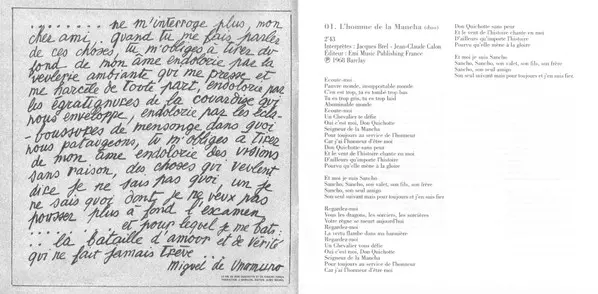 ........ ne m'interroge plus, mon
cher ami.. quand tu me fais parler
de ces choses, tu m'obliges à tirer du
fond de mon âme endolorie par la
rêverie ambiante qui me presse et
me harcèle de toute part, endolorie par
les égratignures de la couardise qui
nous enveloppe, endolorie par les écla-
-boussures de mensonge dans quoi
nous pataugeons, tu m'obliges à tirer
de mon âme endolorie des visions
sans raison, des choses qui veulent
dire je ne sais pas quoi, un je
ne sais quoi dont je ne veux pas
pousser plus à fond l'examen
........ et pour lequel je me bats.
.... la bataille d'amour et de vérité
qui ne fait jamais trêve ....
Miguel de Unamuno
01. L'homme de la Mancha (duo)
2'43
Interprètes : Jacques Brel - Jean-Claude Calon
Editeur : Emi Music Publishing France
℗ 1968 Barclay
Ecoute-moi
Pauvre monde, insupportable monde
C'en est trop, tu es tombé trop bas
Tu es trop gris, tu es trop laid
Abominable monde
Ecoute-moi
Un Chevalier te défie
Oui c'est moi, Don Quichotte
Seigneur de la Mancha
Pour toujours au service de l'honneur
Car j'ai l'honneur d'être moi
Don Quichotte sans peur
Et le vent de l'histoire chante en moi
D'ailleurs qu'importe l'histoire
Pourvu qu'elle mène à la gloire
Et moi je suis Sancho
Sancho, Sancho, son valet, son fils, son frère
Sancho, son seul ami
Son seul suivant mais pour toujours et j'en suis fier
Regardez-moi
Vous les dragons, les sorciers, les sorcières
Votre règne se meurt aujourd'hui
Regardez-moi
La vertu flambe dans ma bannière
Regardez-moi
Un Chevalier vous défie
Oui c'est moi, Don Quichotte
Seigneur de la Mancha
Pour toujours au service de l'honneur
Car j'ai l'honneur d'être moi
Don Quichotte sans peur
Et le vent de l'histoire chante en moi
D'ailleurs qu'importe l'histoire
Pourvu qu'elle mène à la gloire
Et moi je suis Sancho
Sancho, Sancho, son valet, son fils, son frère
Sancho, son seul ami
Son seul suivant mais pour toujours et j'en suis fier